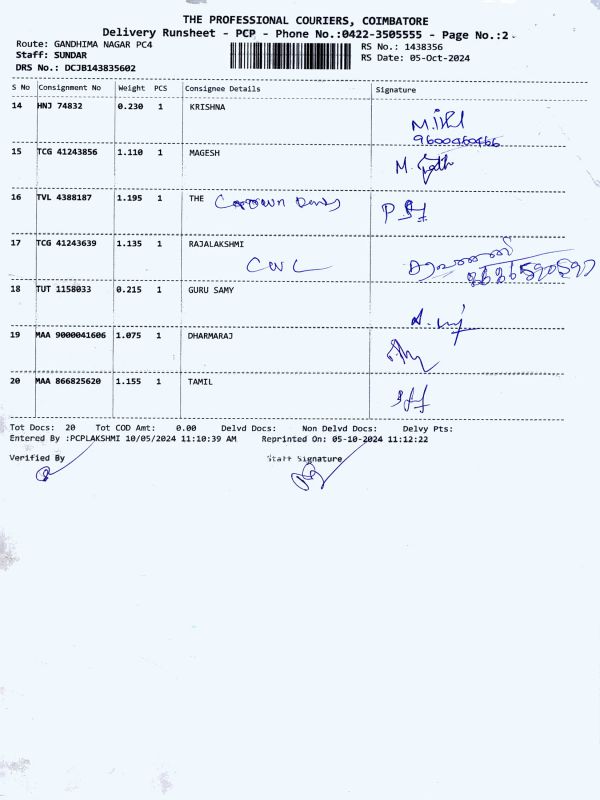 THE PROFESSIONAL COURIERS, COIMBATORE
Delivery Runsheet - PCP - Phone No.:0422-3505555 - Page No.:2
Route: GANDHIMA NAGAR PC4 RS No.: 1438356
Staff: SUNDAR RS Date: 05-Oct-2024
DRS No.: DCJB143835602
S No Consignment No Weight PCS Consignee Details Signature
14 HNJ 74832 0.230 1 KRISHNA
9600460466
15 TCG 41243856 1.110 1 MAGESH M.
16 TVL 4388187 1.195 1 THE
17 TCG 41243639 1.135 1 RAJALAKSHMI
18 TUT 1158033 0.215 1 GURU SAMY
19 MAA 9000041606 1.075 1 DHARMARAJ
20 MAA 866825620 1.155 1 TAMIL
Tot Docs: 20 Tot COD Amt: 0.00 Delvd Docs: Non Delvd Docs: Delvy Pts:
Entered By :PCPLAKSHMI 10/05/2024 11:10:39 AM Reprinted On: 05-10-2024 11:12:22
Verified By Staff Signature